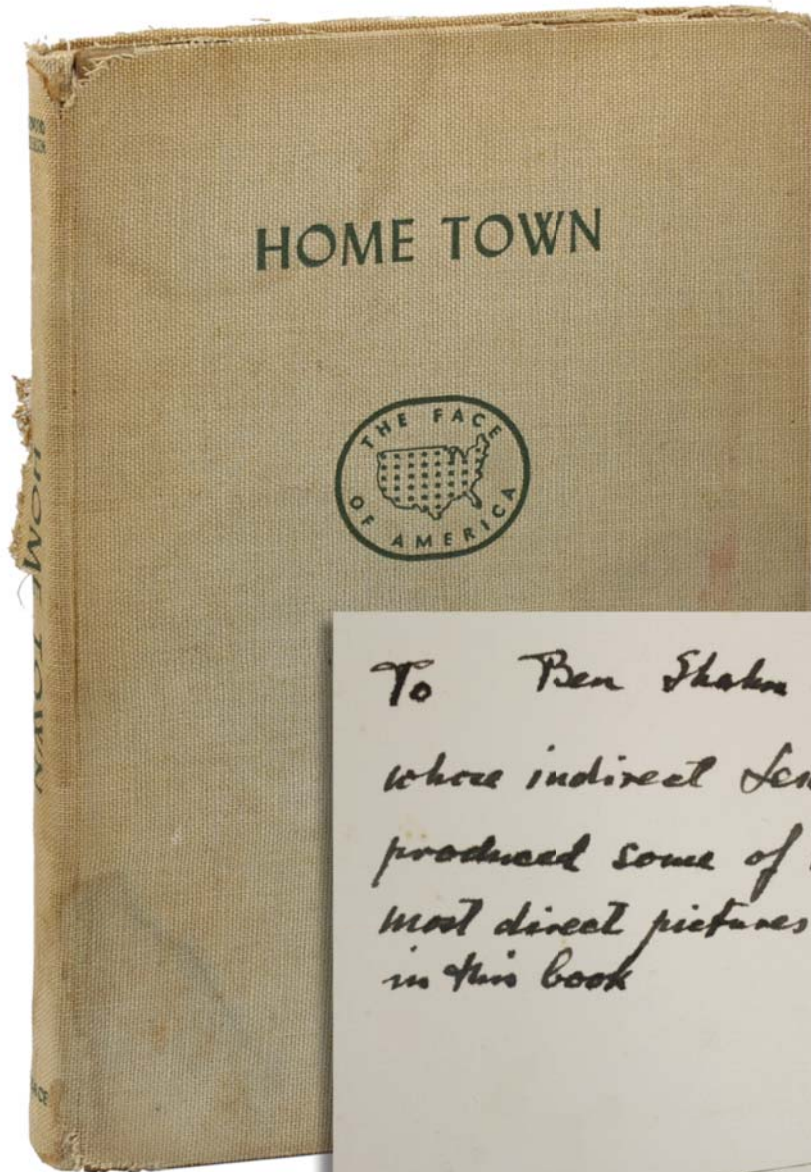 HOME TOWN
THE FACE
OF AMERICA
HOME TOWN
To Ben Shahn
whose indirect
produced some of
most direct pictures
in this book